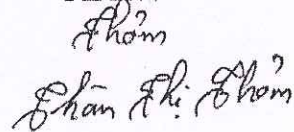 Thơm
Thân Thị Thơm